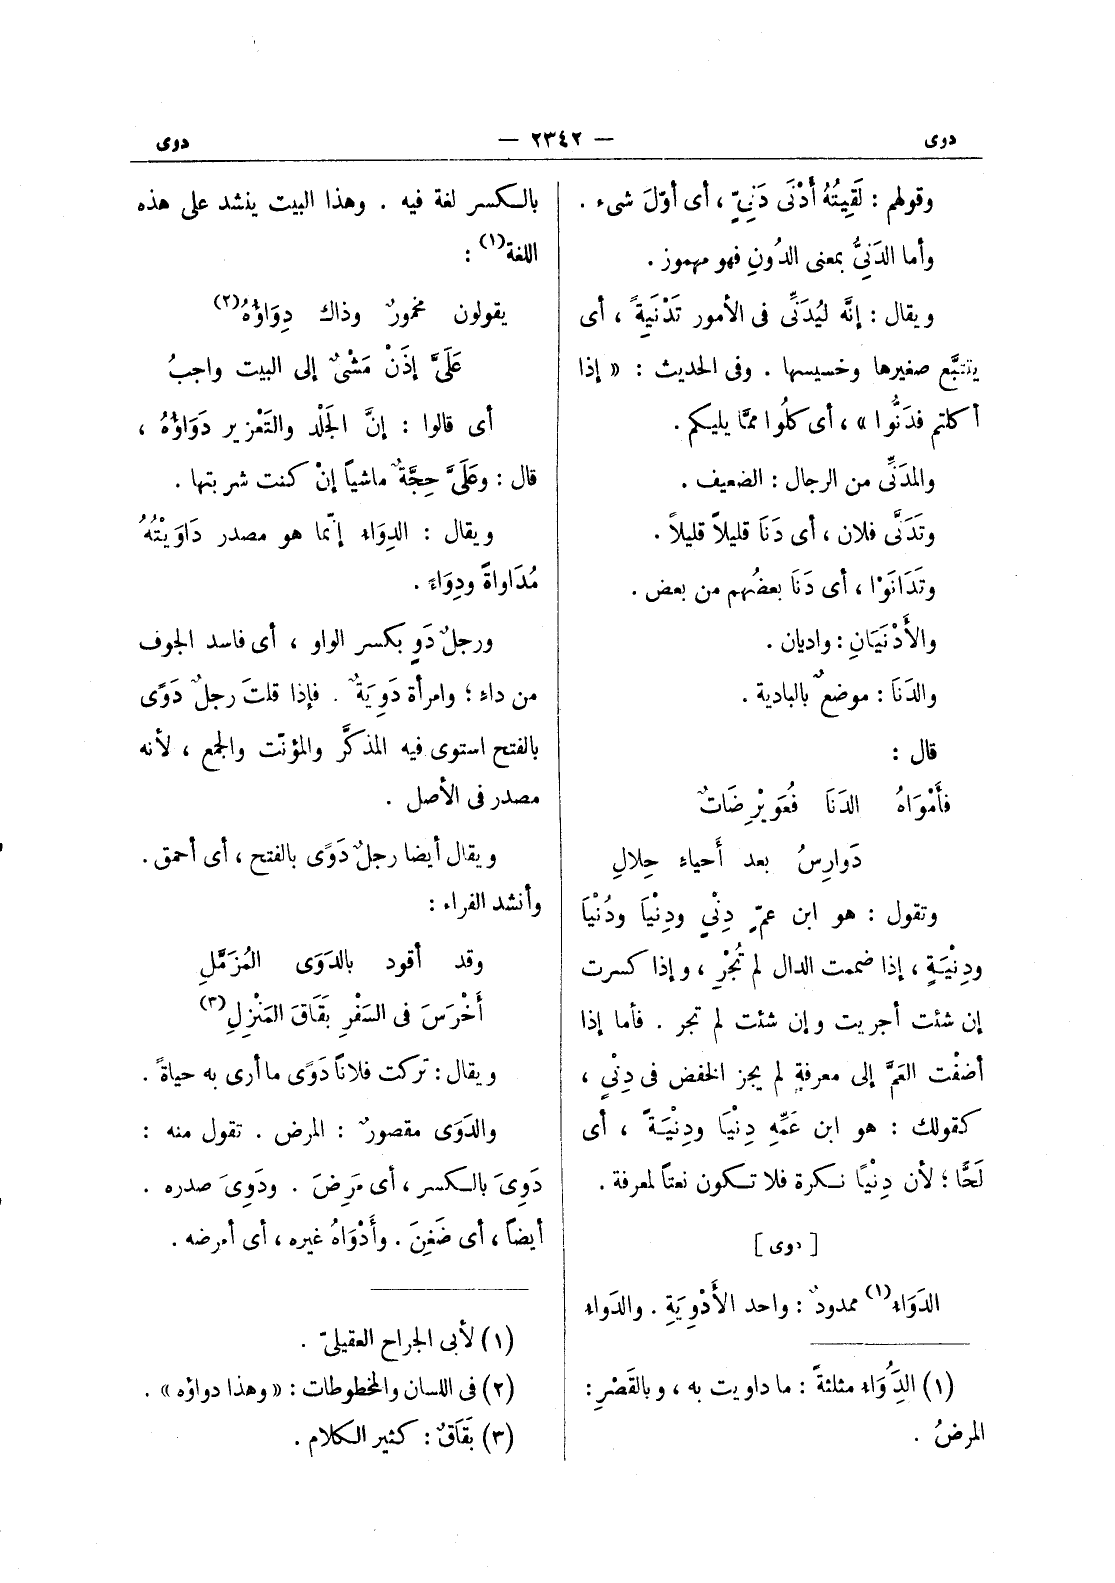 دوى — ٢٣٤٢ — دوى
وقولهم : لَقِيتُهُ أَدْنَى دَنِىٍّ ، أى أوّلَ شىء .
وأما الدَنِىُّ بمعنى الدُونِ فهو مهموز .
ويقال : إنَّه لَيُدَنِّى فى الأمور تَدْنِيَةً ، أى
يتتبَّع صغيرها وخسيسها . وفى الحديث : « إذا
أكلتم فدَنُّوا » ، أى كلُوا ممَّا يليكم .
والمدَنِّى من الرجال : الضعيف .
وتَدَنَّى فلان ، أى دَنَا قليلاً قليلاً .
وتَدَانَوْا ، أى دَنَا بعضُهم من بعض .
والأَدْنَيَانِ : واديان .
والدَنَا : موضعٌ بالبادية .
قال :
فأَمْوَاهُ الدَنَا فُعَوَيْرِضَاتٌ
دَوارِسُ بعد أَحياءِ حِلالِ
وتقول : هو ابن عمٍّ دِنْىٍ ودِنْيَا ودُنْيَا
ودِنْيَةٍ ، إذا ضممت الدال لم تُجْرِ ، وإذا كسرت
إن شئت أجريت وإن شئت لم تجر . فأما إذا
أضفْت العَمَّ إلى معرفةٍ لم يجز الخفض فى دِنْىٍ ،
كقولك : هو ابن عَمِّهِ دِنْيَا ودِنْيَةً ، أى
لَحًّا ؛ لأن دِنْيًا نكرة فلا تكون نعتاً لمعرفة .
[ دوى ]
الدَوَاء(١) ممدودٌ : واحد الأَدْوِيَةِ . والدَواء
(١) الدِّوَاء مثلثةً : ما داويت به ، وبالقَصْرِ :
المرضُ .
بالكسر لغة فيه . وهذا البيت ينشد على هذه
اللغة(١) :
يقولون مخمورٌ وذاك دِوَاؤُهُ(٢)
عَلَىَّ إذَنْ مَشْىٌ إلى البيت واجبُ
أى قالوا : إنَّ الجَلْد والتَعْزير دَوَاؤُهُ ،
قال : وعَلَىَّ حِجَّةٌ ماشياً إنْ كنت شربتها .
ويقال : الدِوَاء إنّما هو مصدر دَاوَيْتُهُ
مُدَاواةً ودِوَاءً .
ورجلٌ دَوٍ بكسر الواو ، أى فاسد الجوف
من داء ؛ وامرأة دَوِيَةٌ . فإذا قلتَ رجلٌ دَوًى
بالفتح استوى فيه المذكَّر والمؤنّث والجمع ، لأنه
مصدر فى الأصل .
ويقال أيضا رجلٌ دَوًى بالفتح ، أى أحمق .
وأنشد الفراء :
وقد أقود بالدَوَى المُزَمَّلِ
أَخْرَسَ فى السَفْرِ بَقَاقَ المَنْزِلِ(٣)
ويقال : تركت فلاناً دَوًى ما أرى به حياةً .
والدَوَى مقصورٌ : المرض . تقول منه :
دَوِىَ بالكسر ، أى مَرِضَ . ودَوِىَ صدره .
أيضاً ، أى ضَغِنَ . وأَدْوَاهُ غيره ، أى أمرضه .
(١) لأبى الجراح العقيلىّ .
(٢) فى اللسان والمخطوطات : « وهذا دواؤه » .
(٣) بَقَاقٌ : كثير الكلام .